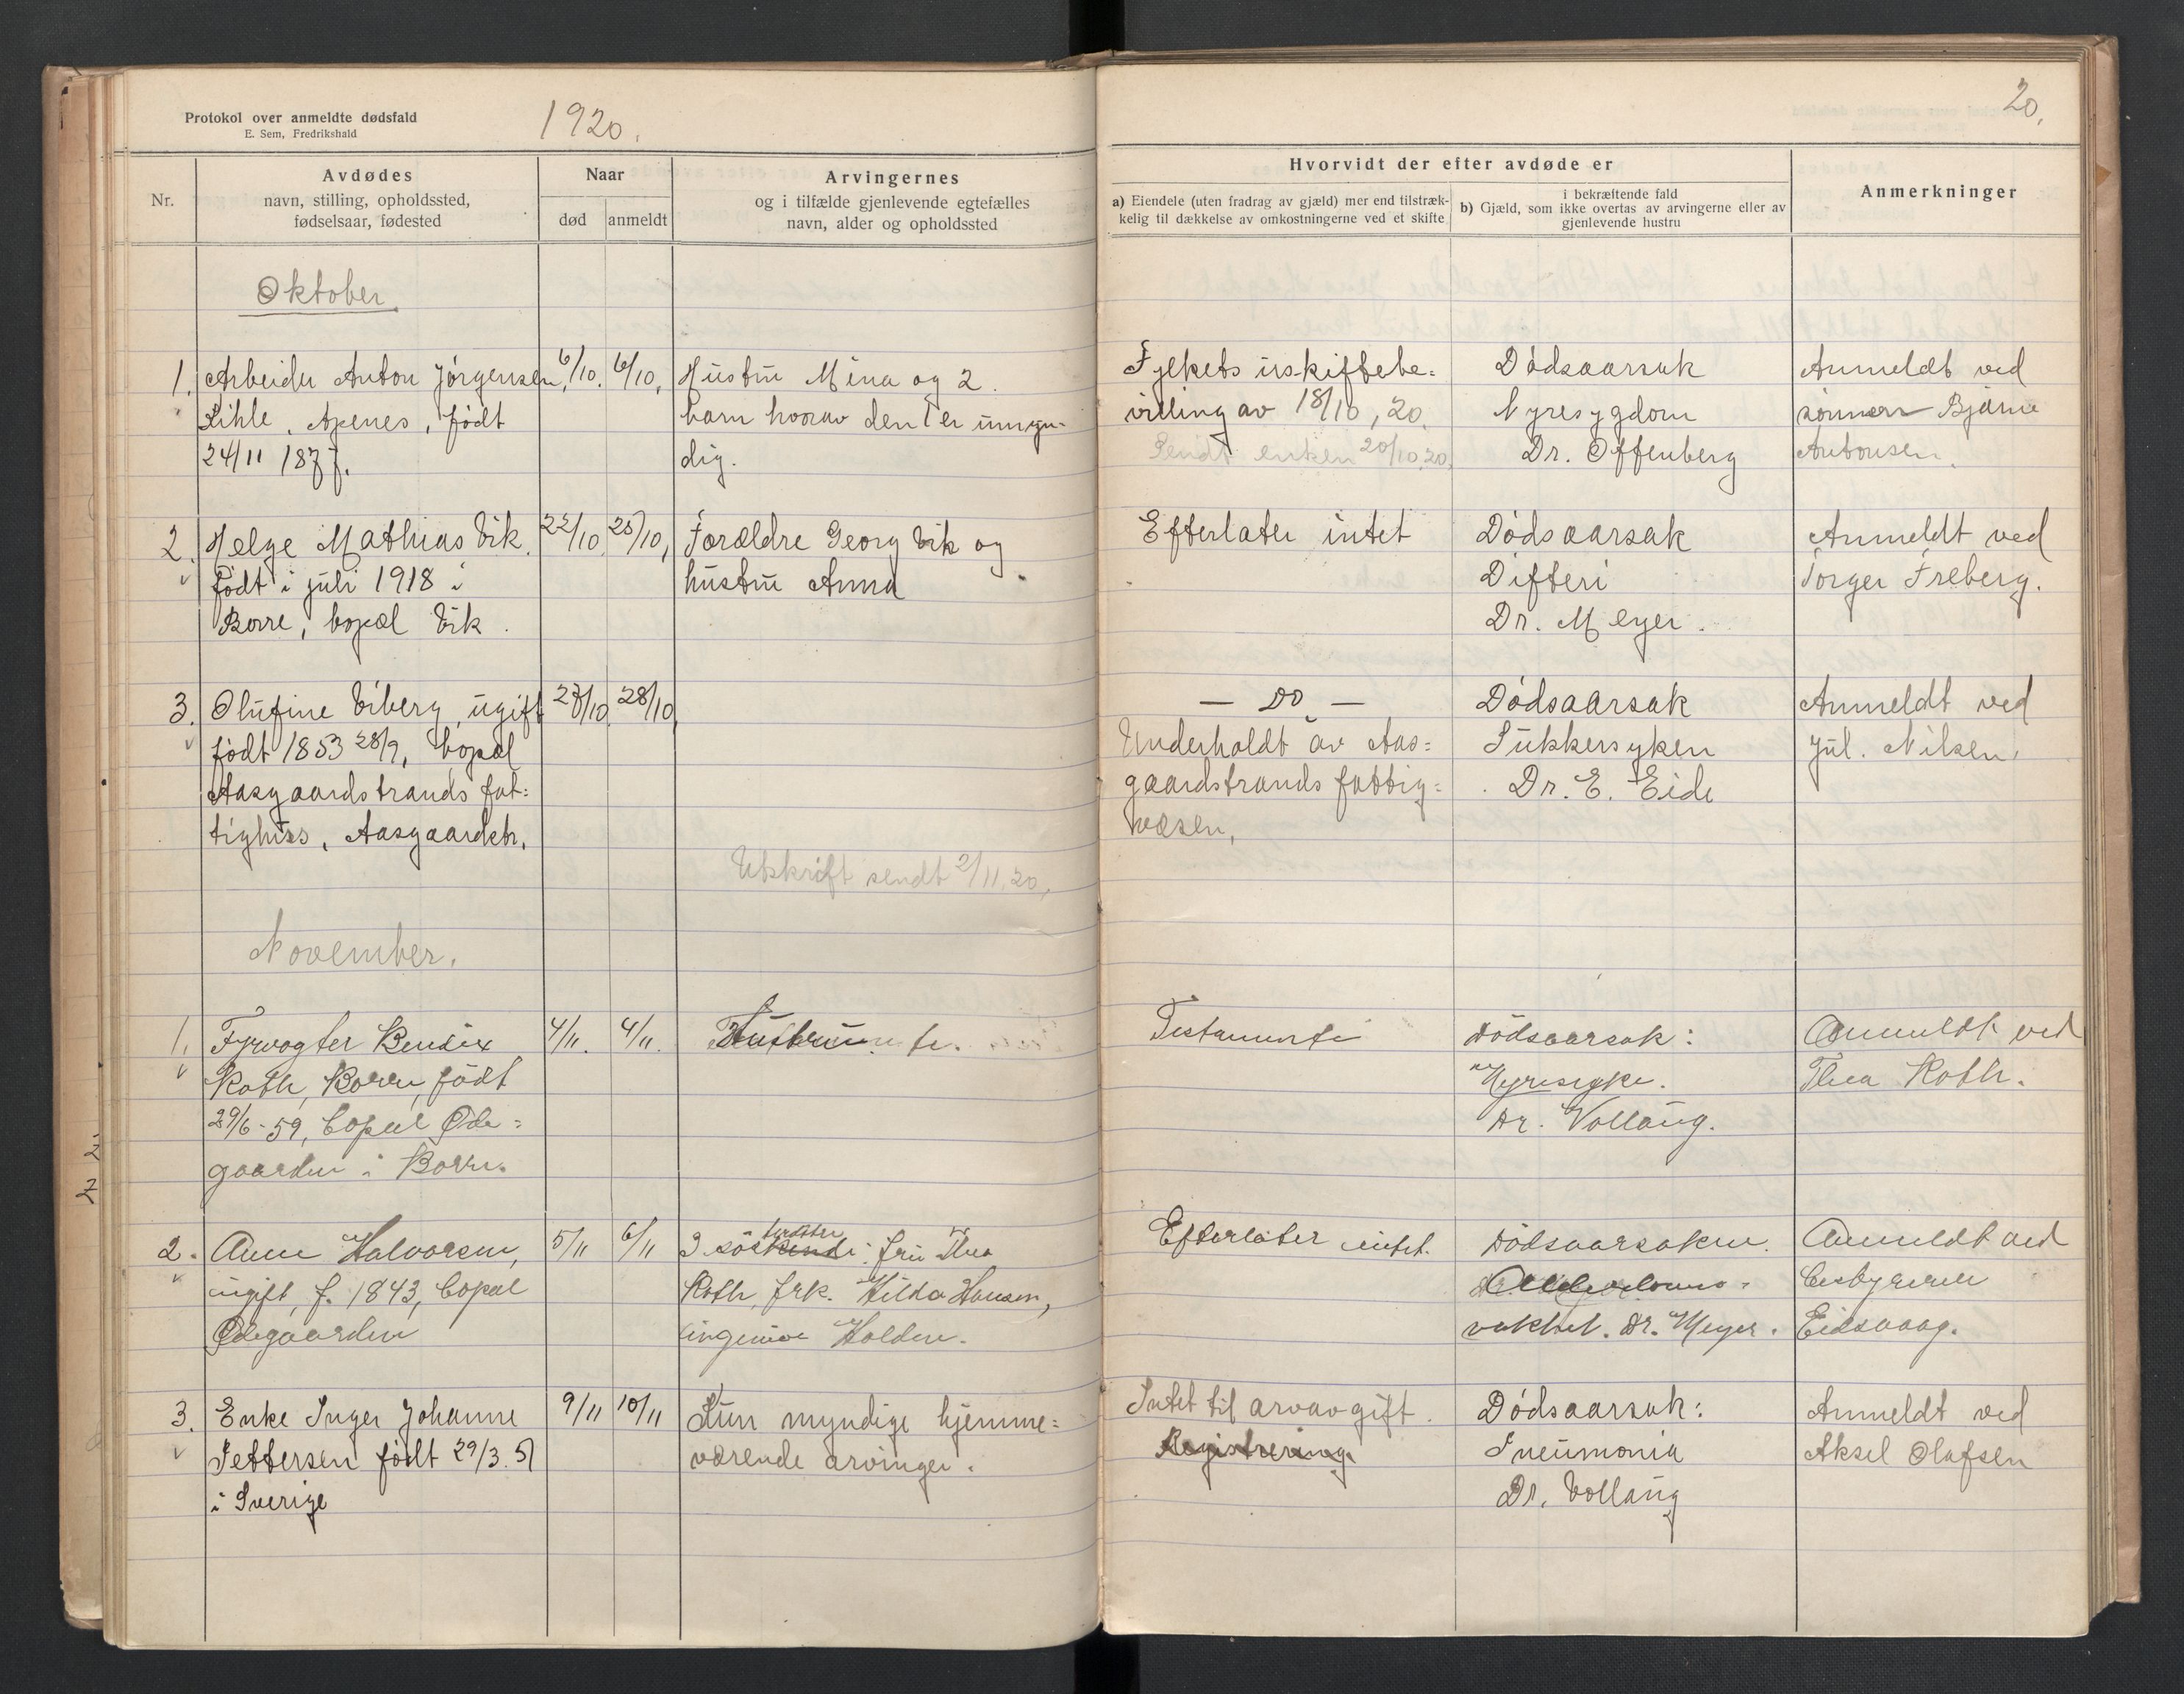 Protokol over anmeldte dødsfald
E. Sem, Fredrikshald
1920.
Nr.
Avdødes
navn, stilling, opholdssted,
fødselsaar, fødested
Naar
død
anmeldt
Arvingernes
og i tilfælde gjenlevende egtefælles
navn, alder og opholdssted
Oktober.
1. Arbeider Anton Jørgensen, 6/10. 6/10, Hustru Mina og 2
Kihle, Apenes, født barn hvorav den 1 er umyn-
24/11 1877. dig.
2. Helge Mathias Vik. 22/10. 25/10, Forældre Georg Vik og
født i juli 1918 i hustru Anna
Borre, bopæl Vik.
3. Olufine Viberg, ugift 27/10. 28/10,
født 1853 28/9, bopæl
Aasgaardstrands fat=
tighus, Aasgaardstr.
Utskrift sendt 2/11.20.
November.
1. Fyrvogter Bendix 4/11. 4/11. Hustru
Roth, Borre, født
29/6-59, bopæl Øde=
gaarden i Borre.
2. Anne Halvorsen, 5/11 6/11 3 søskende: fru Thea
ugift, f. 1843, bopæl Roth, frk. Hilda Hansen,
Ødegaarden ingeniør Holden.
3. Enke Inger Johanne 9/11 10/11 Kun myndige hjemme=
Pettersen født 29/3.51 værende arvinger.
i Sverige
20.
Hvorvidt der efter avdøde er
a) Eiendele (uten fradrag av gjæld) mer end tilstræk-
kelig til dækkelse av omkostningerne ved et skifte
i bekræftende fald
b) Gjæld, som ikke overtas av arvingerne eller av
gjenlevende hustru
Anmerkninger
Fylkets uskiftebe= Dødsaarsak Anmeldt ved
villing av 18/10, 20. Nyresygdom sønnen Bjarne
Sendt enken 20/10.20. Dr. Offenberg Antonsen.
Efterlater intet Dødsaarsak Anmeldt ved
Difteri Torger Freberg.
Dr. Meyer.
— Do — Dødsaarsak Anmeldt ved
Underholdt av Aas= Sukkersyken Jul. Nilsen.
gaardstrands fattig= Dr. E. Eide
væsen.
Testamente Dødsaarsak: Anmeldt ved
Nyresyke. Thea Roth.
Dr. Vollaug.
Efterlater intet. Dødsaarsaken Anmeldt ved
Alderdoms=
vakhet. Dr. Meyer. Eidsvaag.
Intet til arvavgift. Dødsaarsak: Anmeldt ved
Registrering. Pneumonia Aksel Olafsen
Dr. Vollaug